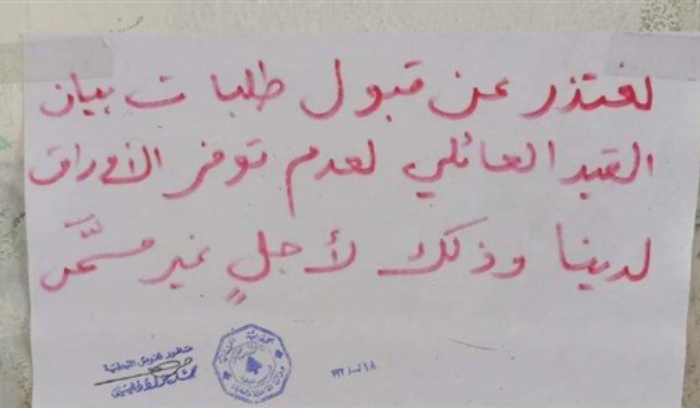 لفتذر عن قبول طلبات بيان
القيد العائلي لعدم توفر الأوراق
لدينا وذلك لأجلٍ غير مسمَّى